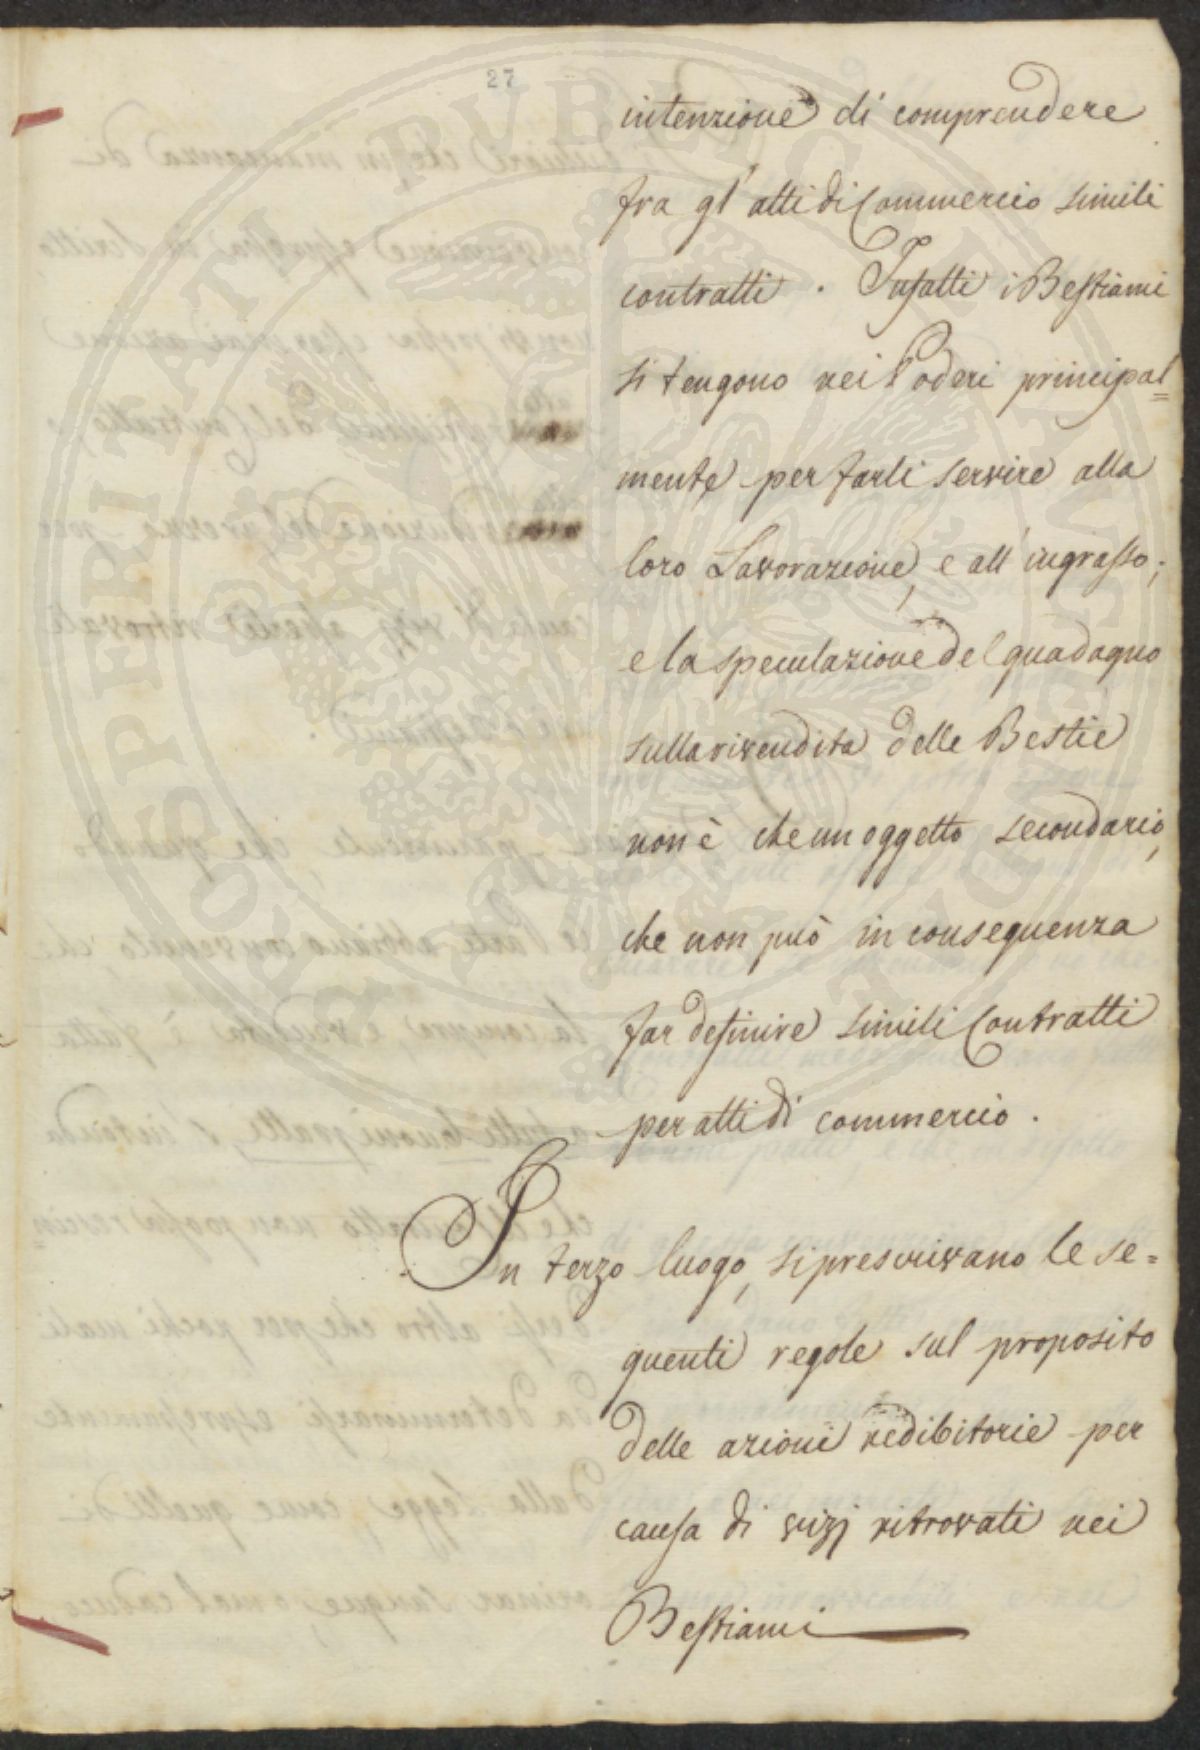 27
intenzione di comprendere
fra gl'atti di Commercio simili
contratti. Infatti i Bestiami
si tengono nei Poderi principal=
mente per farli servire alla
loro Lavorazione, e all'ingrasso;
e la speculazione del guadagno
sulla rivendita delle Bestie
non è che un oggetto secondario,
che non può in conseguenza
far definire simili Contratti
per atti di commercio.
In terzo luogo, si prescrivano le se=
guenti regole sul proposito
delle azioni redibitorie per
causa di vizj ritrovati nei
Bestiami
PROSPERITATI PUBLICAE AUGENDAE